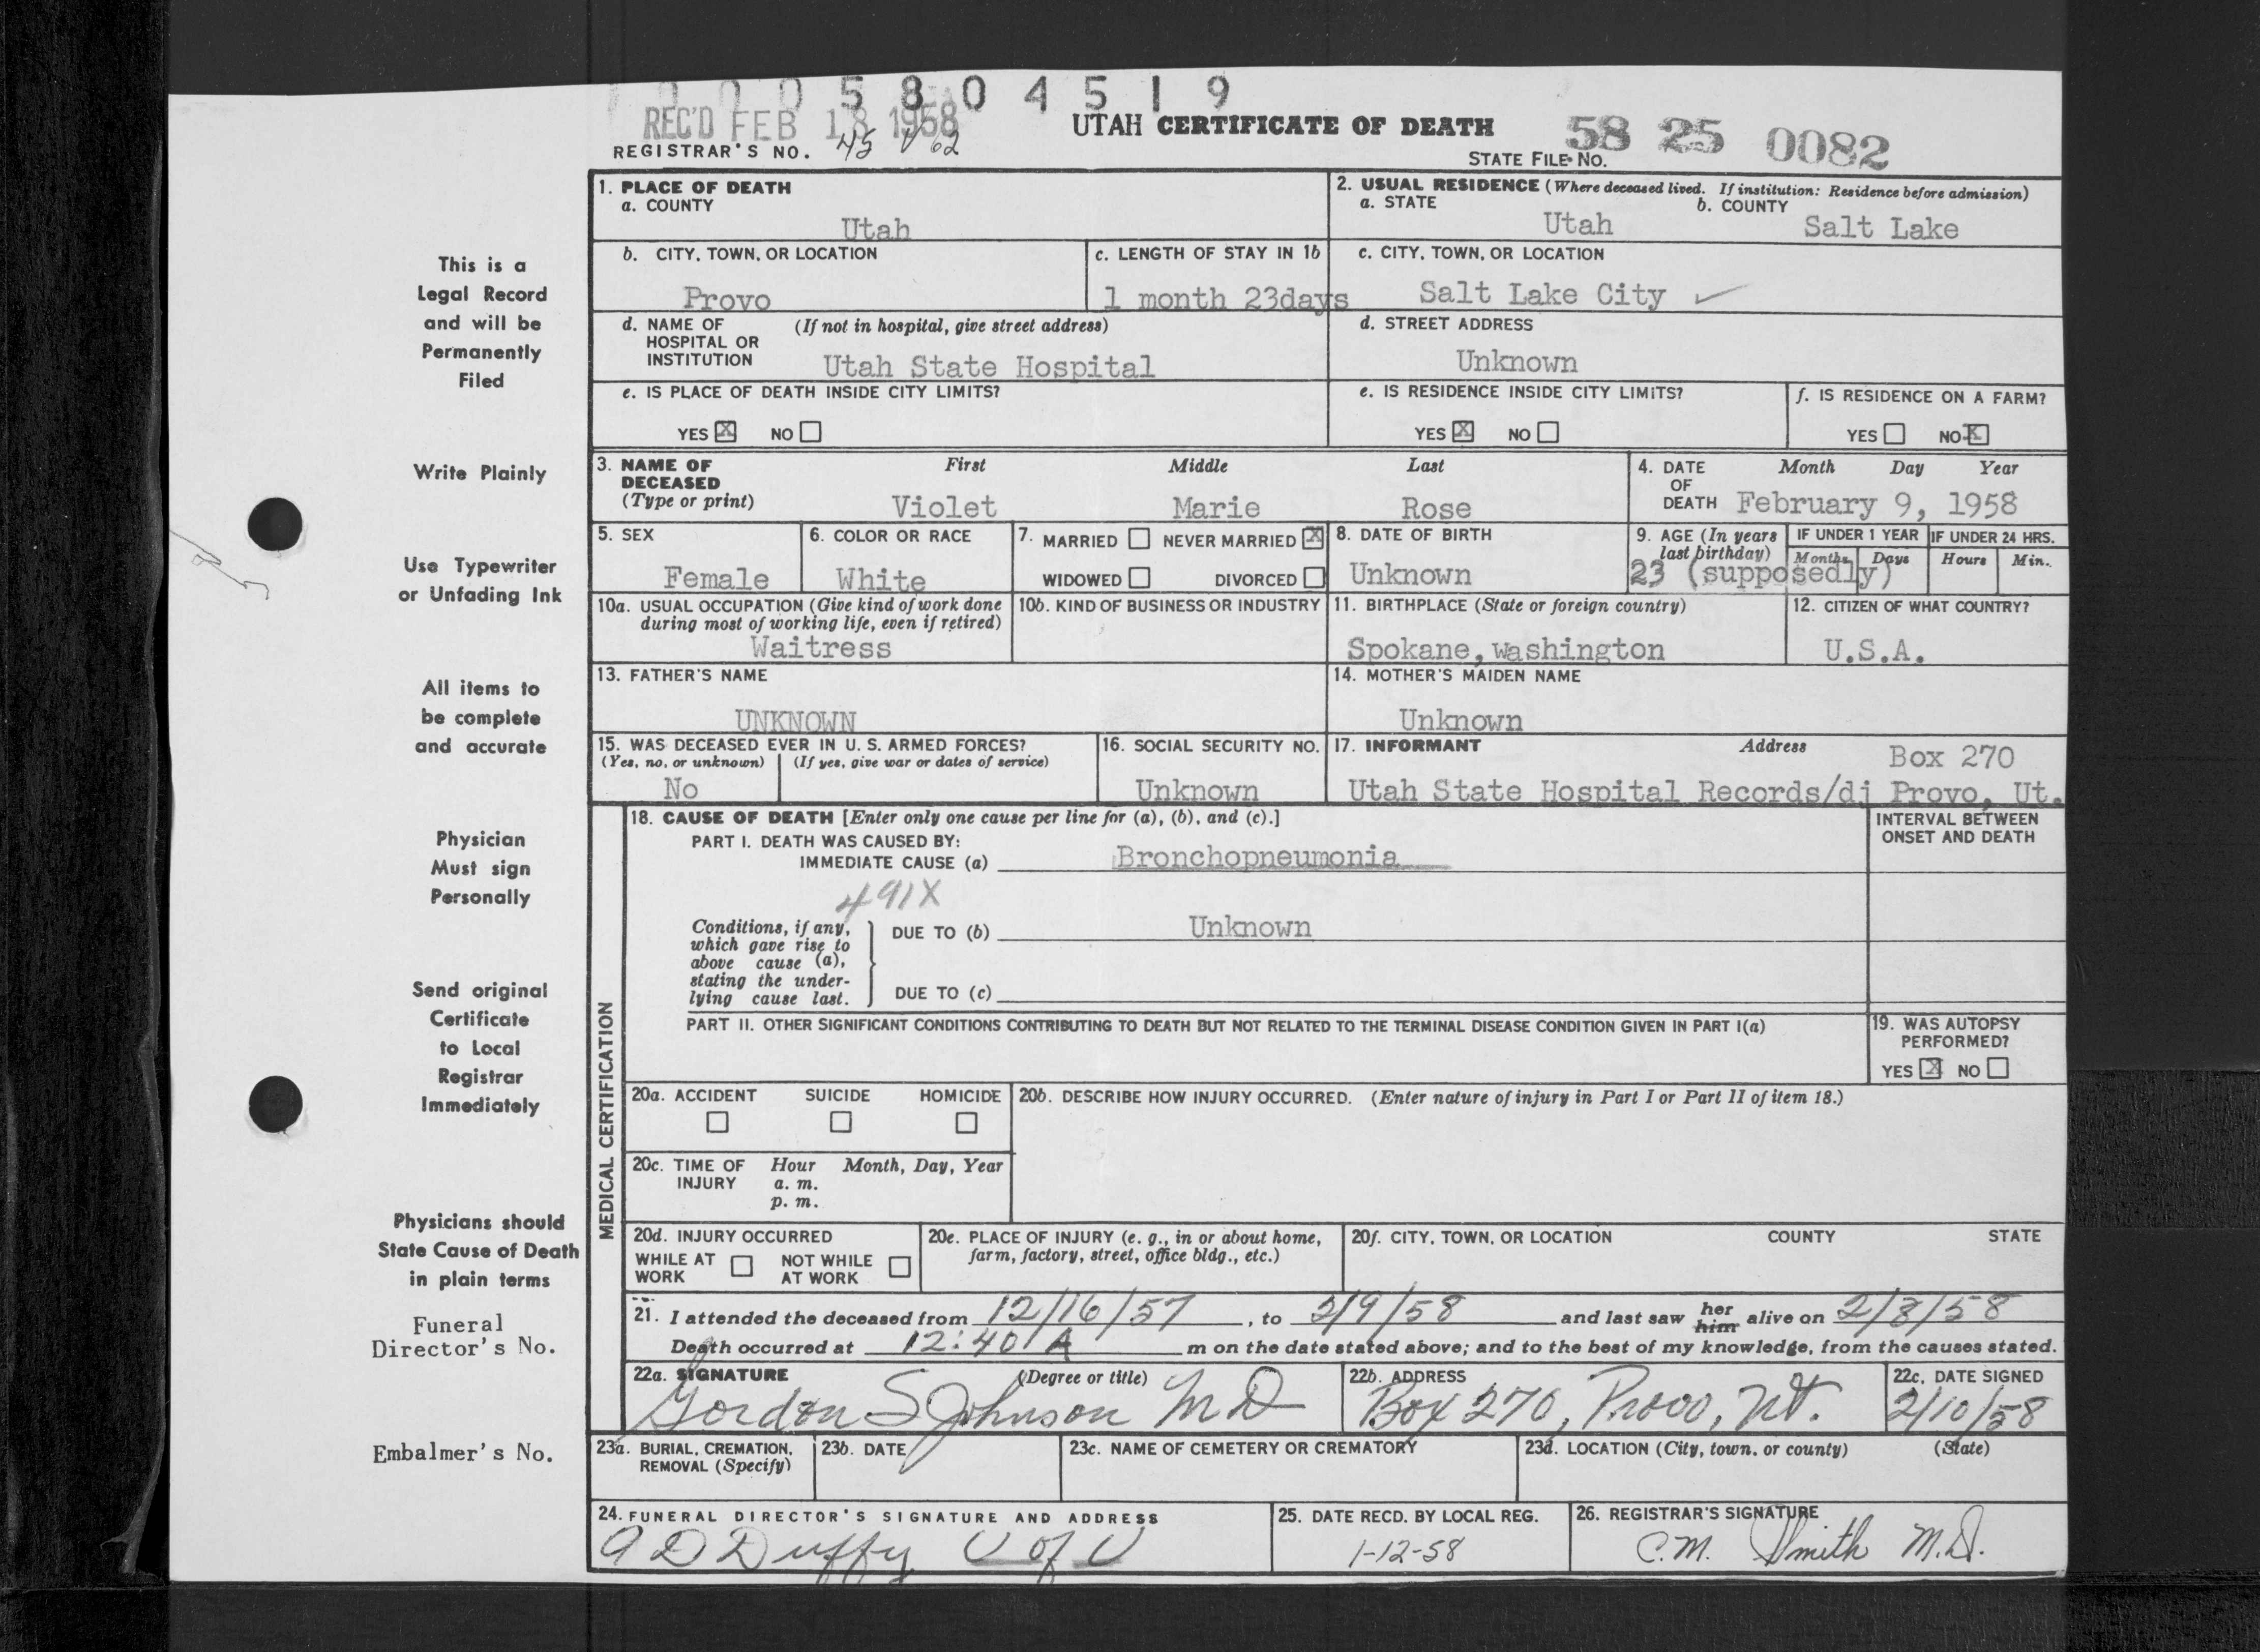 0 0 0 5 8 0 4 5 1 9
REC'D FEB 18 1958
UTAH CERTIFICATE OF DEATH
58 25 0082
REGISTRAR'S NO. 45 V 62
STATE FILE NO.
1. PLACE OF DEATH
a. COUNTY
Utah
2. USUAL RESIDENCE (Where deceased lived. If institution: Residence before admission)
a. STATE
Utah
b. COUNTY
Salt Lake
b. CITY, TOWN, OR LOCATION
Provo
c. LENGTH OF STAY IN 1b
1 month 23days
c. CITY, TOWN, OR LOCATION
Salt Lake City ✓
d. NAME OF HOSPITAL OR INSTITUTION
(If not in hospital, give street address)
Utah State Hospital
d. STREET ADDRESS
Unknown
e. IS PLACE OF DEATH INSIDE CITY LIMITS?
YES X NO
e. IS RESIDENCE INSIDE CITY LIMITS?
YES X NO
f. IS RESIDENCE ON A FARM?
YES NO X
3. NAME OF DECEASED
(Type or print)
First Middle Last
Violet Marie Rose
4. DATE OF DEATH
Month Day Year
February 9, 1958
5. SEX
Female
6. COLOR OR RACE
White
7. MARRIED NEVER MARRIED X
WIDOWED DIVORCED
8. DATE OF BIRTH
Unknown
9. AGE (In years last birthday)
23 (supposedly)
IF UNDER 1 YEAR
Months Days
IF UNDER 24 HRS.
Hours Min.
10a. USUAL OCCUPATION (Give kind of work done during most of working life, even if retired)
Waitress
10b. KIND OF BUSINESS OR INDUSTRY
11. BIRTHPLACE (State or foreign country)
Spokane, Washington
12. CITIZEN OF WHAT COUNTRY?
U.S.A.
13. FATHER'S NAME
UNKNOWN
14. MOTHER'S MAIDEN NAME
Unknown
15. WAS DECEASED EVER IN U. S. ARMED FORCES?
(Yes, no, or unknown) (If yes, give war or dates of service)
No
16. SOCIAL SECURITY NO.
Unknown
17. INFORMANT Address
Box 270
Utah State Hospital Records/dj Provo, Ut.
MEDICAL CERTIFICATION
18. CAUSE OF DEATH [Enter only one cause per line for (a), (b), and (c).]
INTERVAL BETWEEN ONSET AND DEATH
PART I. DEATH WAS CAUSED BY:
IMMEDIATE CAUSE (a) Bronchopneumonia
491X
Conditions, if any, which gave rise to above cause (a), stating the underlying cause last.
DUE TO (b) Unknown
DUE TO (c)
PART II. OTHER SIGNIFICANT CONDITIONS CONTRIBUTING TO DEATH BUT NOT RELATED TO THE TERMINAL DISEASE CONDITION GIVEN IN PART I(a)
19. WAS AUTOPSY PERFORMED?
YES X NO
20a. ACCIDENT SUICIDE HOMICIDE
20b. DESCRIBE HOW INJURY OCCURRED. (Enter nature of injury in Part I or Part II of item 18.)
20c. TIME OF INJURY
Hour Month, Day, Year
a. m.
p. m.
20d. INJURY OCCURRED
WHILE AT WORK NOT WHILE AT WORK
20e. PLACE OF INJURY (e. g., in or about home, farm, factory, street, office bldg., etc.)
20f. CITY, TOWN, OR LOCATION COUNTY STATE
21. I attended the deceased from 12/16/57, to 2/9/58 and last saw her him alive on 2/8/58
Death occurred at 12:40 A m on the date stated above; and to the best of my knowledge, from the causes stated.
22a. SIGNATURE (Degree or title)
Gordon S Johnson MD
22b. ADDRESS
Box 270, Provo, Ut.
22c. DATE SIGNED
2/10/58
23a. BURIAL, CREMATION, REMOVAL (Specify)
23b. DATE
23c. NAME OF CEMETERY OR CREMATORY
23d. LOCATION (City, town, or county) (State)
24. FUNERAL DIRECTOR'S SIGNATURE AND ADDRESS
A D Duffy U of U
25. DATE RECD. BY LOCAL REG.
1-12-58
26. REGISTRAR'S SIGNATURE
C.M. Smith M.D.
This is a
Legal Record
and will be
Permanently
Filed
Write Plainly
Use Typewriter
or Unfading Ink
All items to
be complete
and accurate
Physician
Must sign
Personally
Send original
Certificate
to Local
Registrar
Immediately
Physicians should
State Cause of Death
in plain terms
Funeral
Director's No.
Embalmer's No.